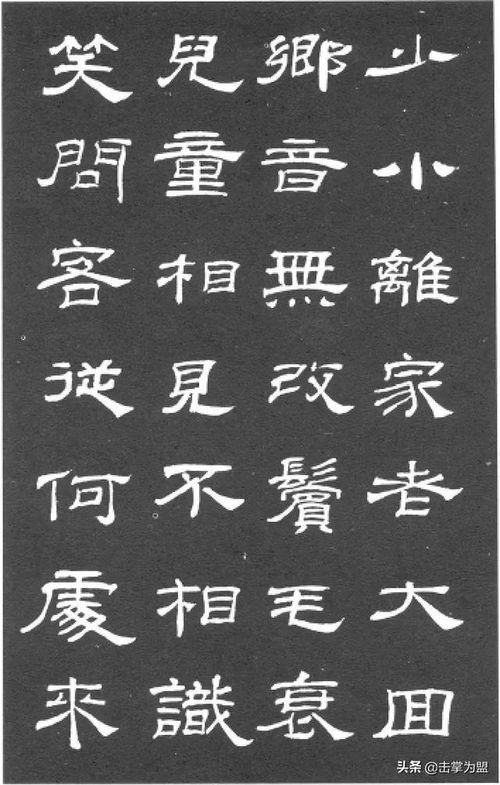 少小離家老大回
鄉音無改鬢毛衰
兒童相見不相識
笑問客從何處來
头条 @击掌为盟